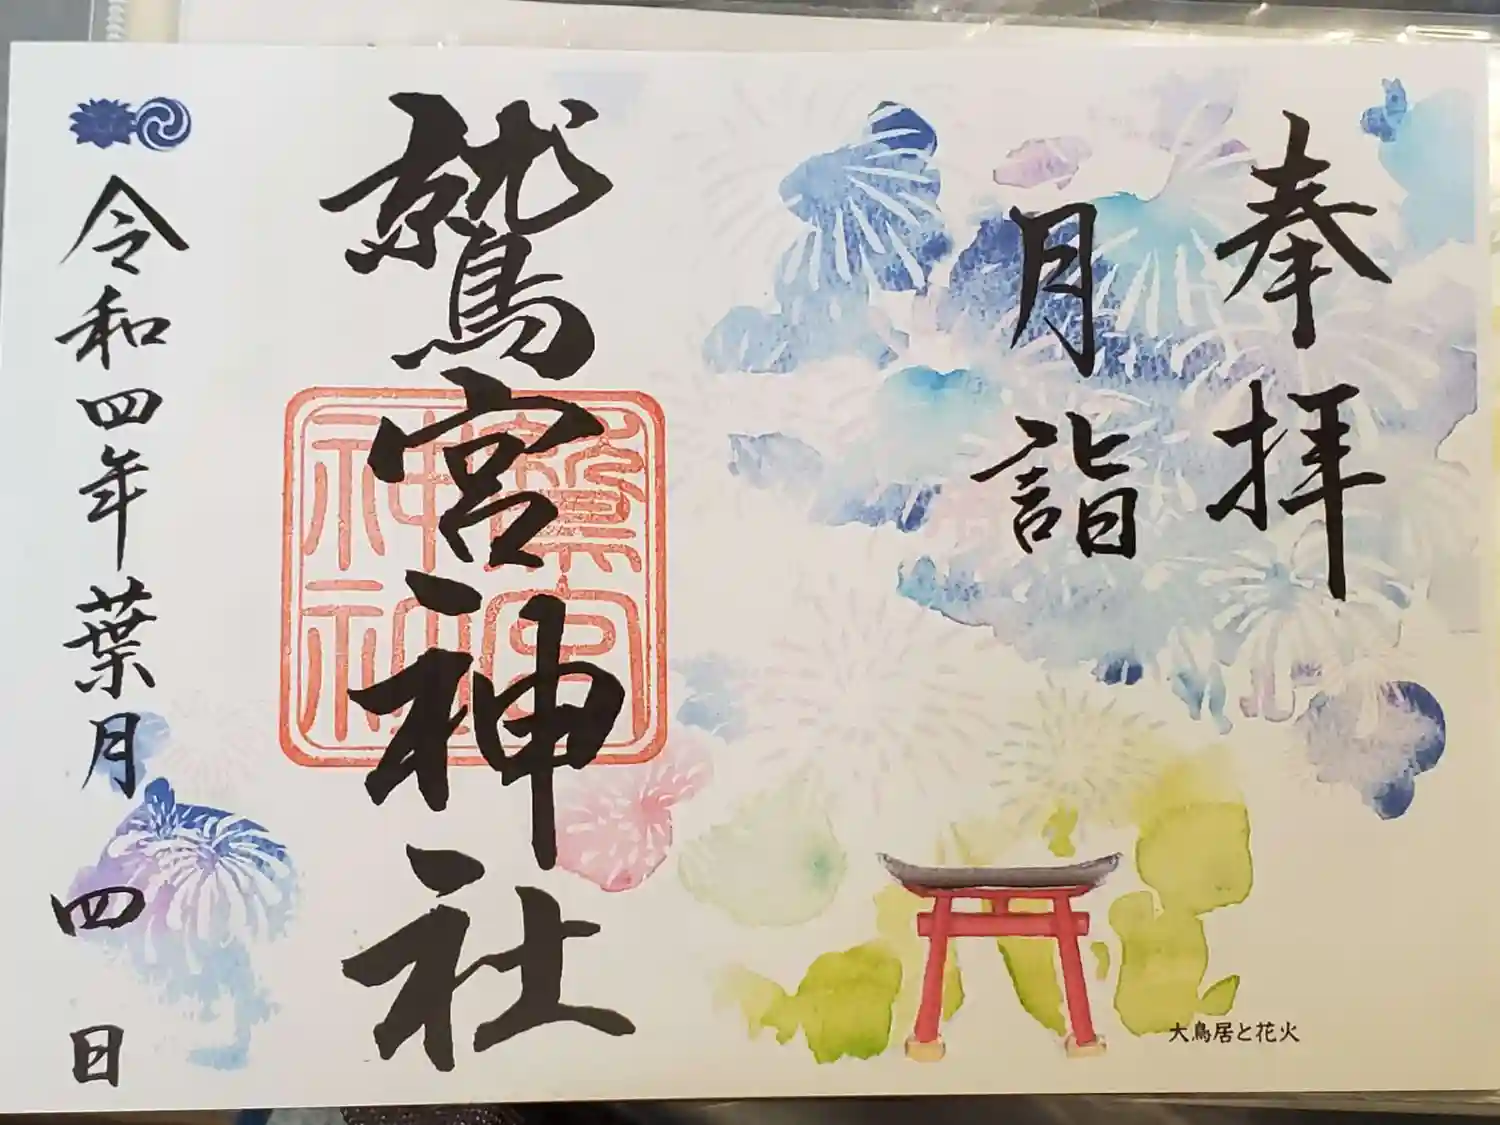 奉拝
月詣
鷲宮神社
鷲宮神社
令和四年葉月四日
大鳥居と花火